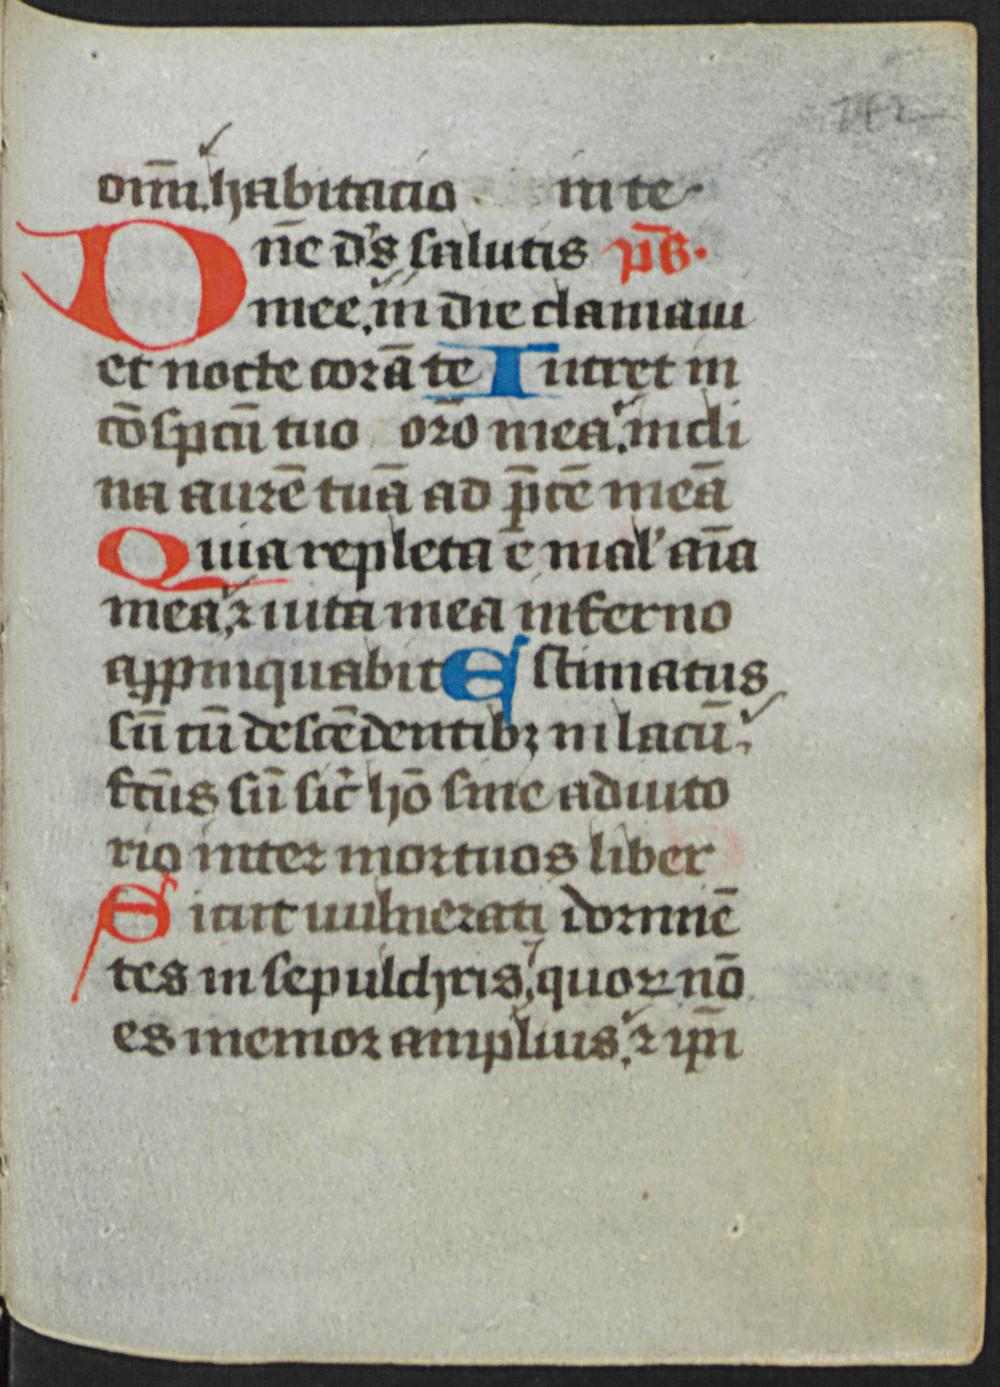 om̅i̅. habitatio in te·
Dn̅e d's̅ salutis ps̅·
mee. in die clamaui
et nocte cora̅ te Intret in
co̅spc̅u tuo or̅o mea. incli
na aure̅ tua̅ ad p̅ce̅ mea̅
Quia repleta e̅ mal' ai̅a
mea. ⁊ uita mea inferno
appinquabit Estimatus
su̅ cu̅ desce̅dentibꝫ in lacu̅.
fc̅us su̅ sic̅ ho̅ sine adiuto
rio inter mortuos liber
Sicut uulnerati dormie̅
tes in sepulchris, quoꝝ no̅
es memor amplius. ⁊ ip̅i